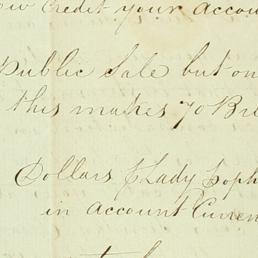 credit your accou
Public Sale but on
this makes 70 B
Dollars & Lady Soph
in account Curren